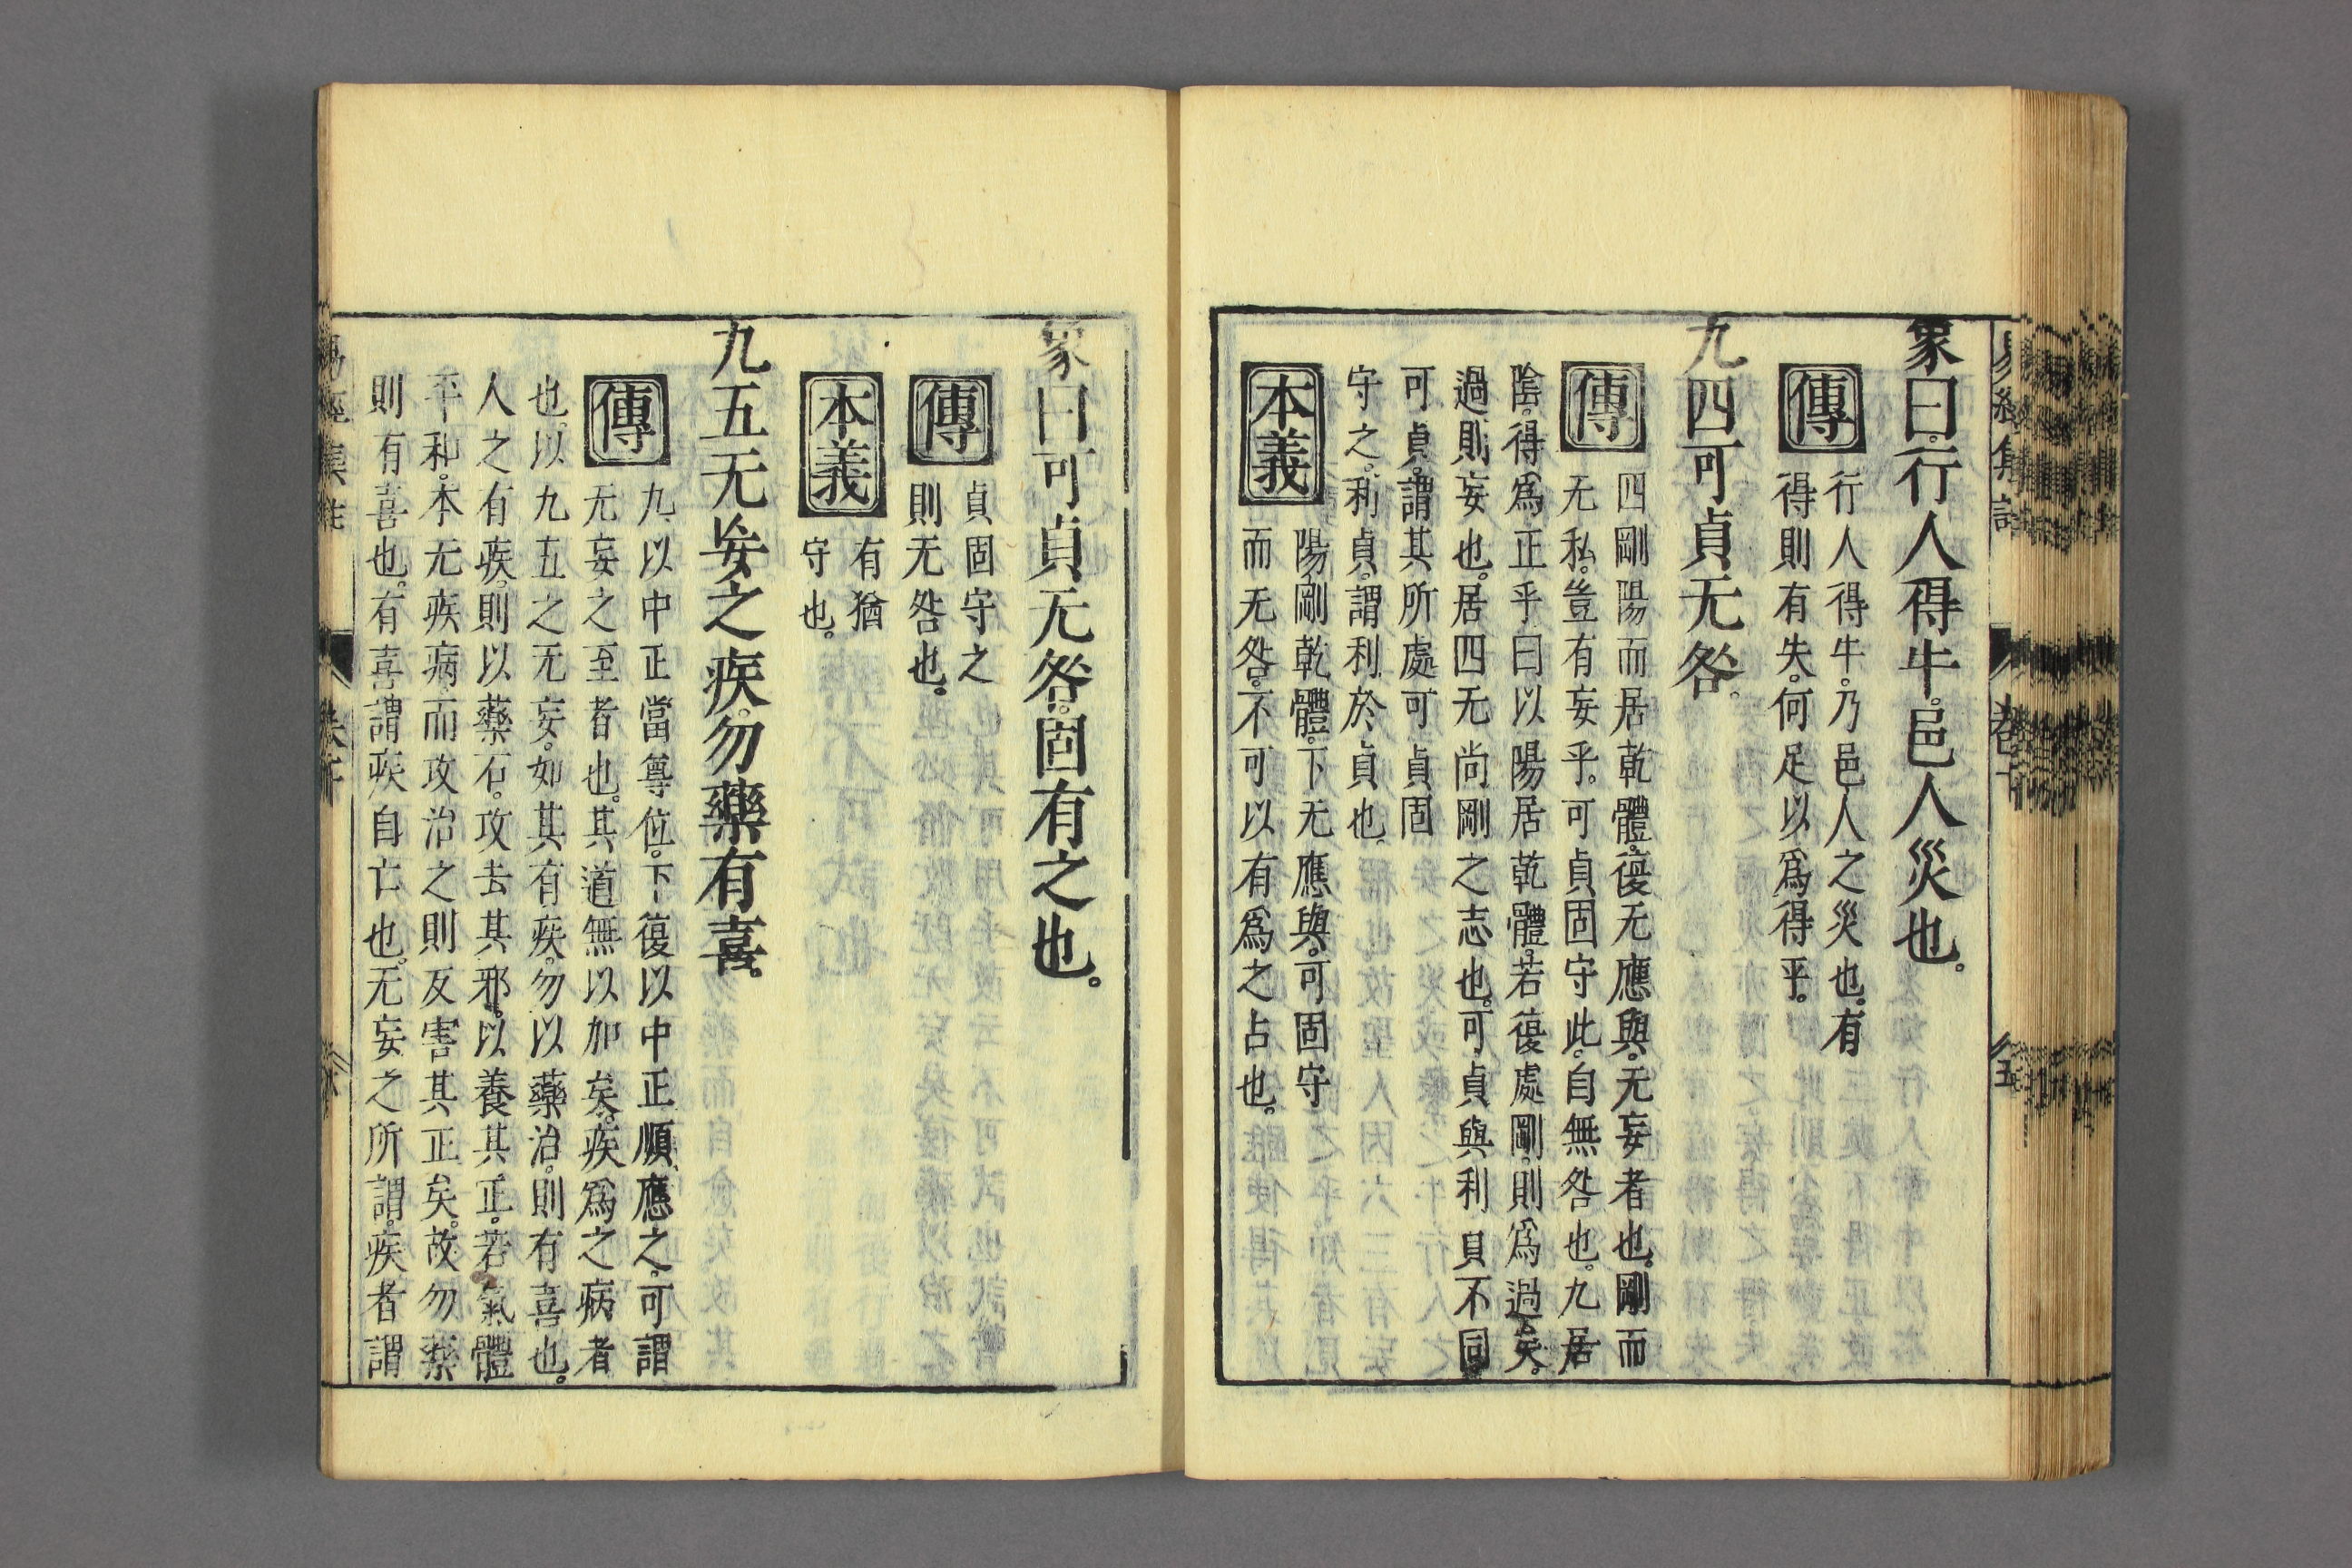 象曰。行人得牛。邑人災也。
傳
行人得牛。乃邑人之災也。有
得則有失。何足以爲得乎。
九四可貞无咎。
傳
四剛陽而居乾體。復无應與。无妄者也。剛而
无私。豈有妄乎。可貞固守此。自無咎也。九居
陰。得爲正乎曰以陽居乾體。若復處剛。則爲過矣。
過則妄也。居四无尚剛之志也。可貞與利貞不同
可貞。謂其所處可貞固
守之。利貞。謂利於貞也
本義
陽剛乾體。下无應與。可固守
而无咎。不可以有爲之占也。
象曰可貞无咎。固有之也。
傳
貞固守之
則无咎也。
本義
有猶
守也。
九五无妄之疾。勿藥有喜。
傳
九以中正當尊位。下復以中正順應之。可謂
无妄之至者也。其道無以加矣。疾爲之病者
也。以九五之无妄。如其有疾。勿以藥治。則有喜也。
人之有疾。則以藥石。攻去其邪。以養其正。若氣體
平和。本无疾病。而攻治之則反害其正矣。故勿藥
則有喜也。有喜謂疾自亡也。无妄之所謂疾者謂